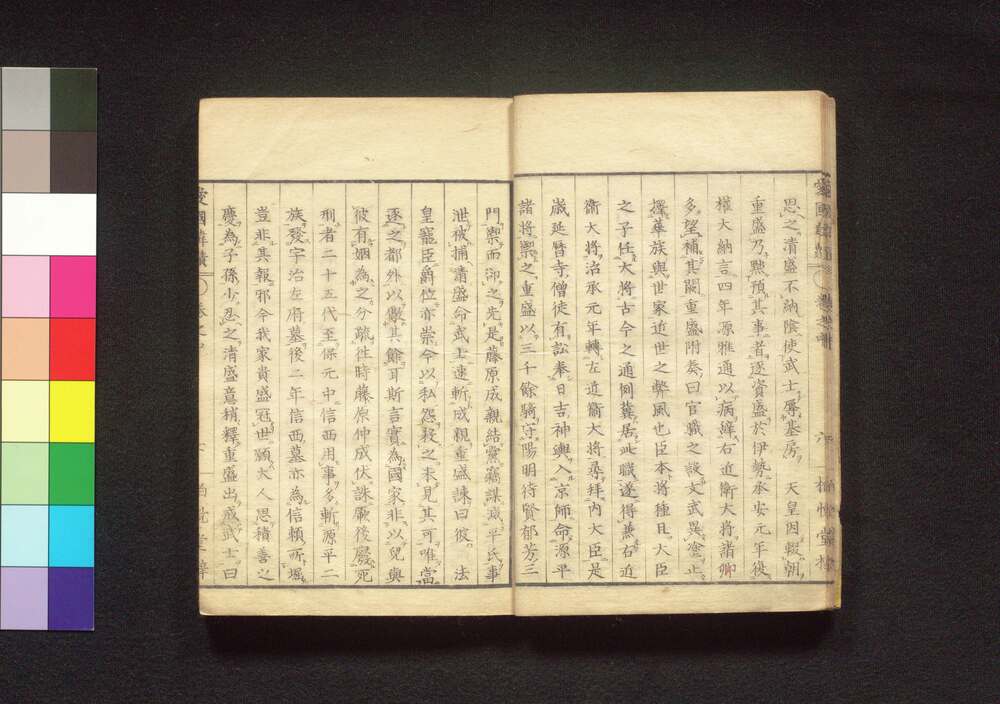 思之清盛不納陰使武士辱基房　天皇因輟朝
重盛乃黙預其事者逐資盛於伊勢承安元年後
權大納言四年源雅通以病辭右近衛大將諸卿
多望補其闕重盛附奏曰官職之設文武異塗止
擇華族與世家近世之弊風也臣本將種且大臣
之子任大將古今之通例冀居此職遂得兼右近
衛大將治承元年轉左近衛大將尋拜内大臣是
歳延暦寺僧徒有訟奉日吉神輿入京師命源平
諸將禦之重盛以三千餘騎守陽明待賢郁芳三
門禦而卻之先是藤原成親結黨竊謀滅平氏事
泄被捕清盛命武士速斬成親重盛諫曰彼　法
皇寵臣爵位亦崇今以私怨殺之未見其可唯當
逐之都外以懲其餘耳斯言實為國家非以兒與
彼有姻為之分疏往時藤原仲成伏誅厥後廢死
刑者二十五代至保元中信西用事多斬源平二
族發宇治左府墓後二年信西墓亦為信頼所堀
豈非其報邪今我家貴盛冠世願大人思積善之
慶為子孫少忍之清盛意稍釋重盛出戒武士曰